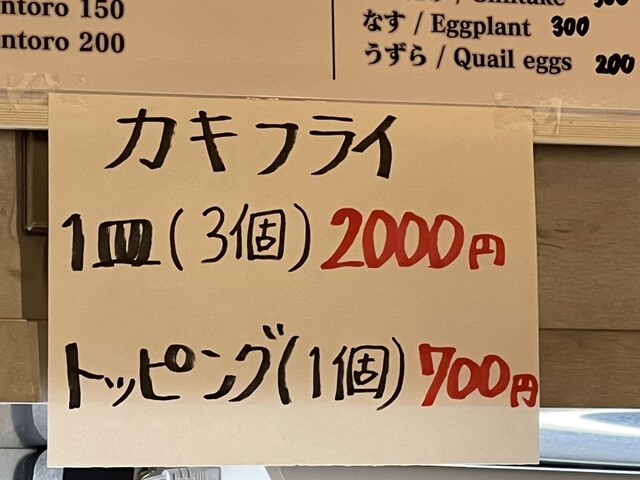 ntoro 150
ntoro 200
なす / Eggplant 300
うずら / Quail eggs 200
カキフライ
1皿(3個) 2000円
トッピング(1個) 700円